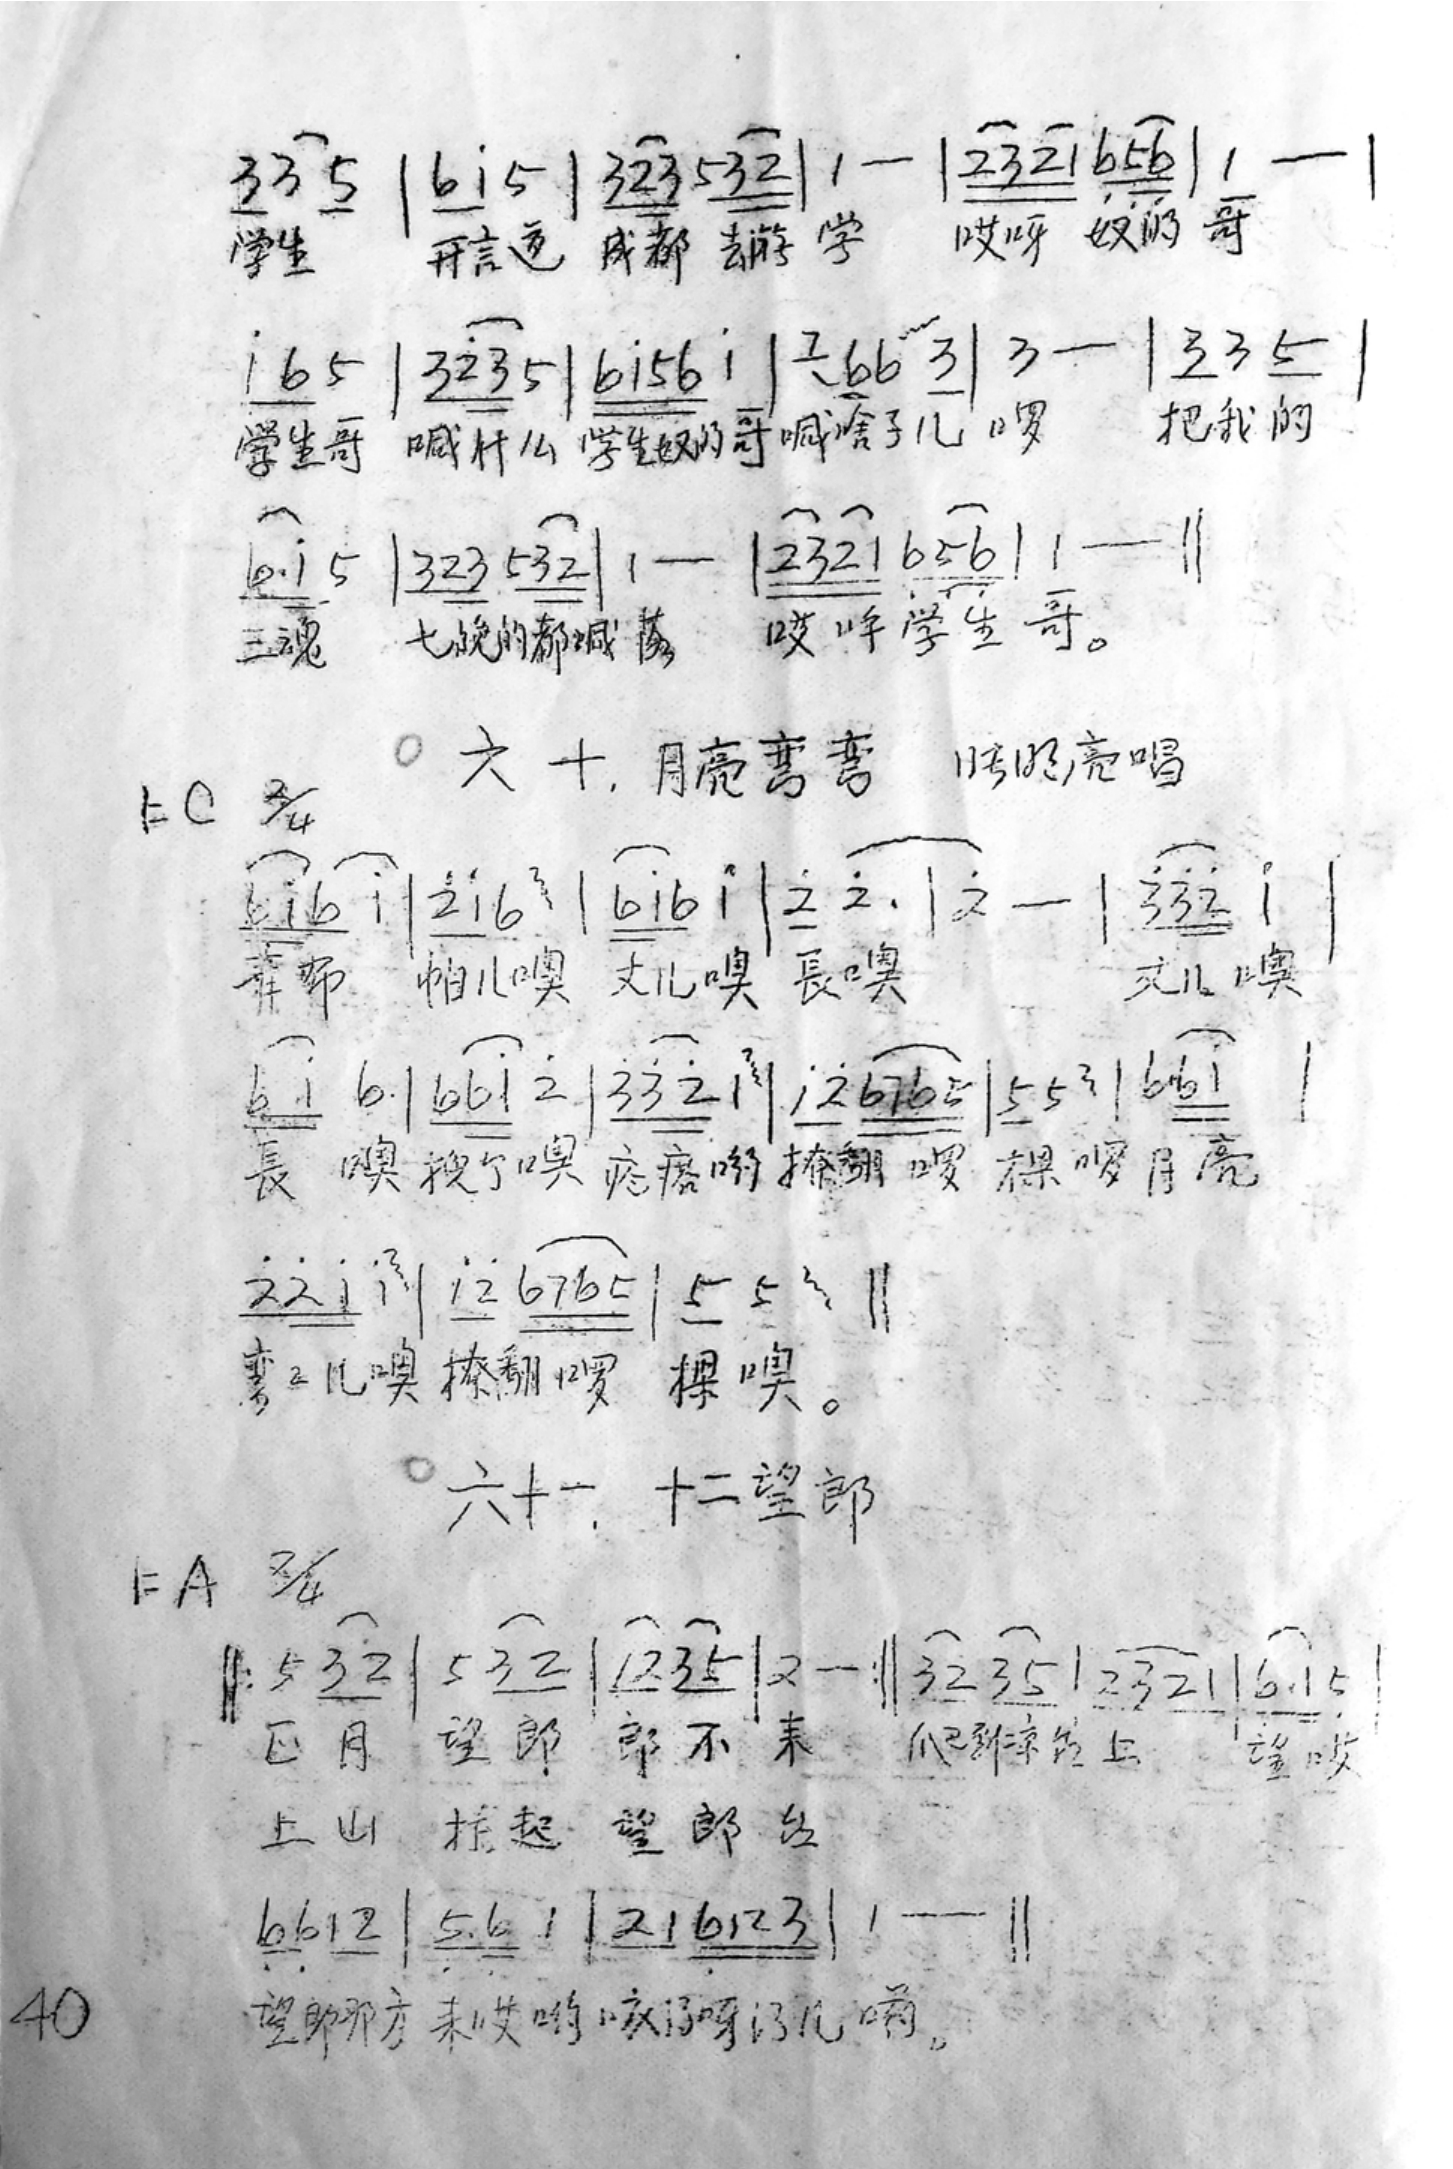 3 3 5 | 6 i 5 | 323 532 | 1 — | 2321 656 | 1 — |
学生 开言道 成都 去游 学 哎呀 奴的 哥
i 6 5 | 3 2 3 5 | 6i56 i | 66 3 | 3 — | 3 3 5 |
学生哥 喊什么 学生奴的哥 喊啥子儿 啰 把我的
6.i 5 | 323 532 | 1 — | 2321 656 | 1 — ‖
三魂 七魄的都喊落 哎 学生哥。
六十. 月亮弯弯 明亮唱
1=C 2/4
6i6 i | 2i6 | 6i6 i | 2 2. | 2 — | 332 i |
帕儿噢 丈儿噢 長噢 丈儿噢
6 i 6. | 66i 2 | 332 i | i2 6765 | 5 5 | 6.6i |
長 噢 挽个噢 疙瘩哟 撩翻啰 棵啰月亮
22i i | i2 6765 | 5 5 ‖
弯弯儿噢 撩翻啰 棵噢。
六十一. 十二望郎
1=A 2/4
‖: 5 32 | 5 32 | 12 35 | 2 — :‖ 32 35 | 2321 | 6.1 5 |
正月 望郎 郎不来 爬到凉台上 望哎
上山 搭起 望郎台
6612 | 5.6 1 | 21 6123 | 1 — ‖
40 望郎那方 来哎哟 咳 呀 儿